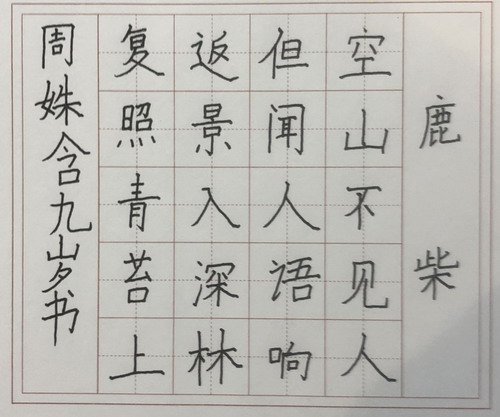 鹿柴
空山不见人
但闻人语响
返景入深林
复照青苔上
周姝含九岁书